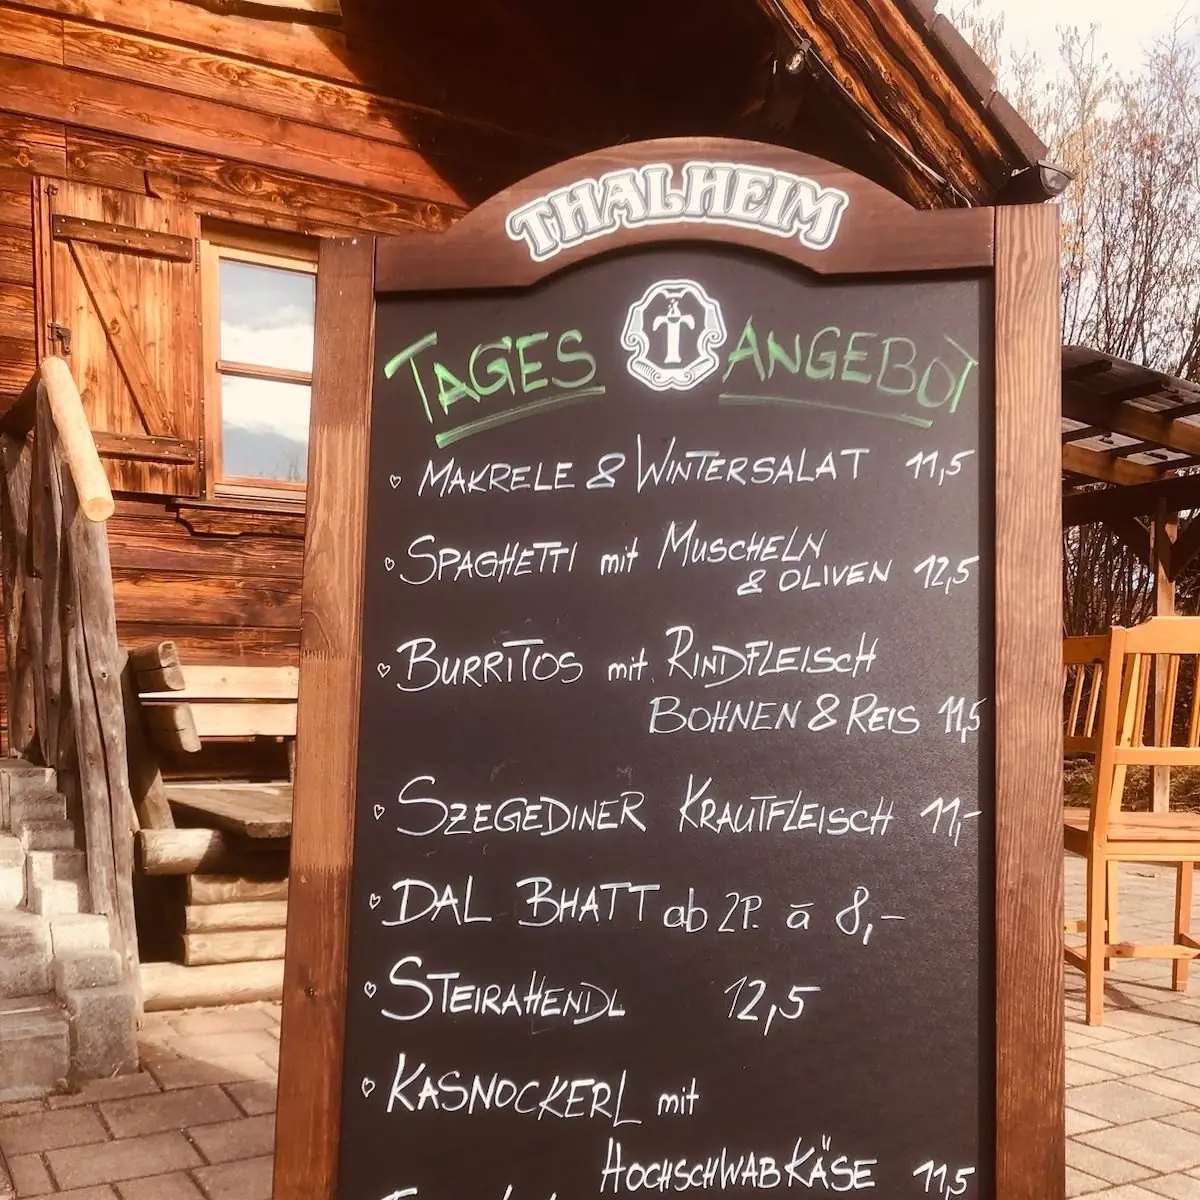 THALHEIM
TAGES ANGEBOT
MAKRELE & WINTERSALAT 11,5
SPAGHETTI mit MUSCHELN
& OLIVEN 12,5
BURRITOS mit RINDFLEISCH
BOHNEN & REIS 11,5
SZEGEDINER KRAUTFLEISCH 11,-
DAL BHATT ab 2P. à 8,-
STEIRAHENDL 12,5
KASNOCKERL mit
HOCHSCHWABKÄSE 11,5